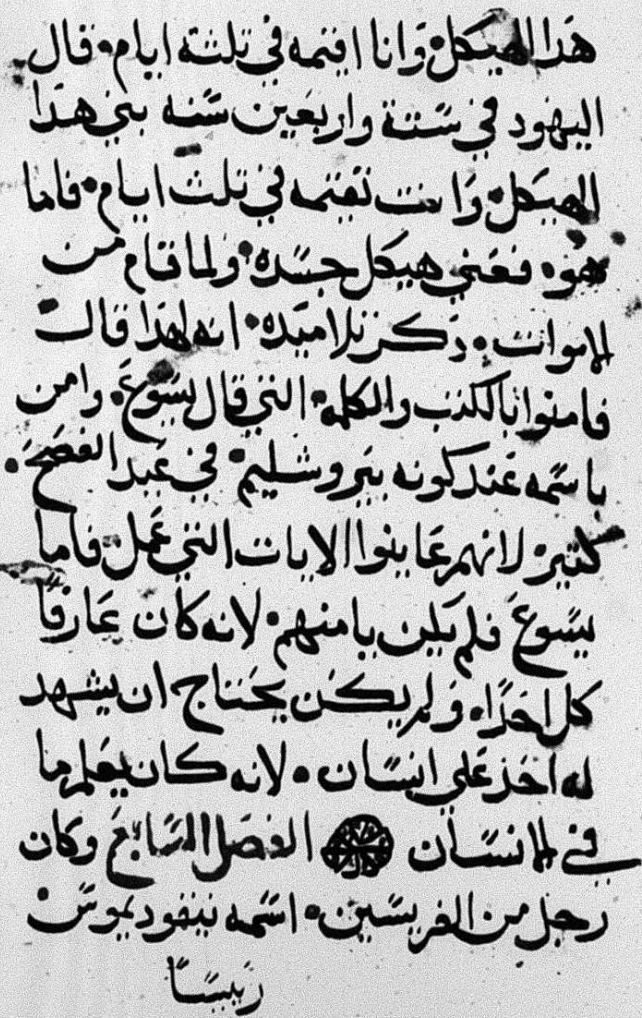 هدا الهيكل وانا اقيمه في تلثة ايام قال
اليهود في ستة واربعين سنه بني هدا
الهيكل وانت تقيمه في تلث ايام فاما
هوه فعني هيكل جسده ولما قام من
الاموات دكر تلاميده انه لهدا قال
فامنوا بالكتب والكلمه التي قال يسوع وامن
باسمه عند كونه بيروشليم في عيد الفصح
كتير لانهم عاينوا الايات التي عمل فاما
يسوع فلم يكن يامنهم لانه كان عارفا
كل احدا ولم يكن يحتاج ان يشهد
له احد على انسان لانه كان يعلم ما
في الانسان الفصل السابع وكان
رجل من الفريسين اسمه نيقوديموس
رييسا